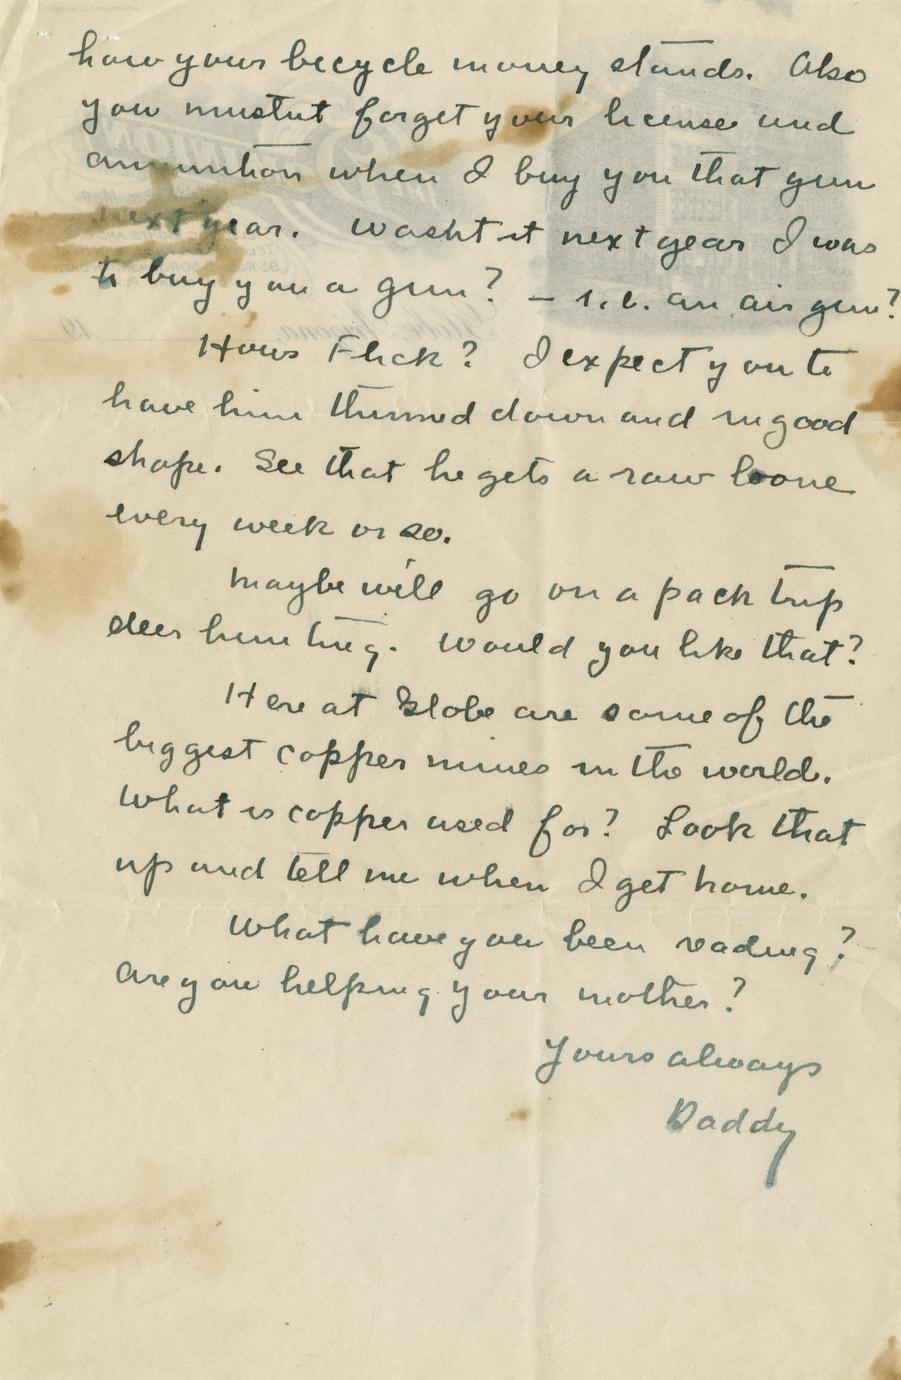 how your becycle money stands. Also
you mustnt forget your license and
ammunition when I buy you that gun
next year. Wasnt it next year I was
to buy you a gun? – i.e. an air gun?
Hows Flick? I expect you to
have him thinned down and in good
shape. See that he gets a raw bone
every week or so.
Maybe we'll go on a pack trip
deer hunting. Would you like that?
Here at Globe are some of the
biggest copper mines in the world.
What is copper used for? Look that
up and tell me when I get home.
What have you been reading?
Are you helping your mother?
Yours always
Daddy